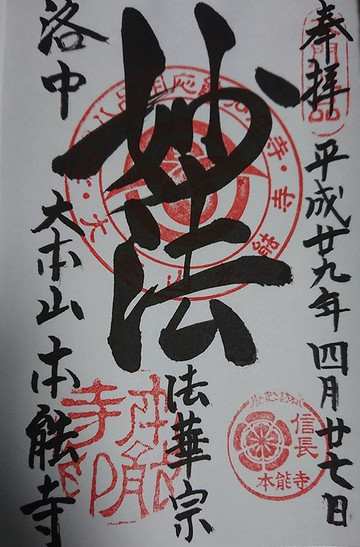 奉拝
平成廿九年四月廿七日
妙法
法華宗
洛中
大本山本能寺
信長
本能寺
本能寺印